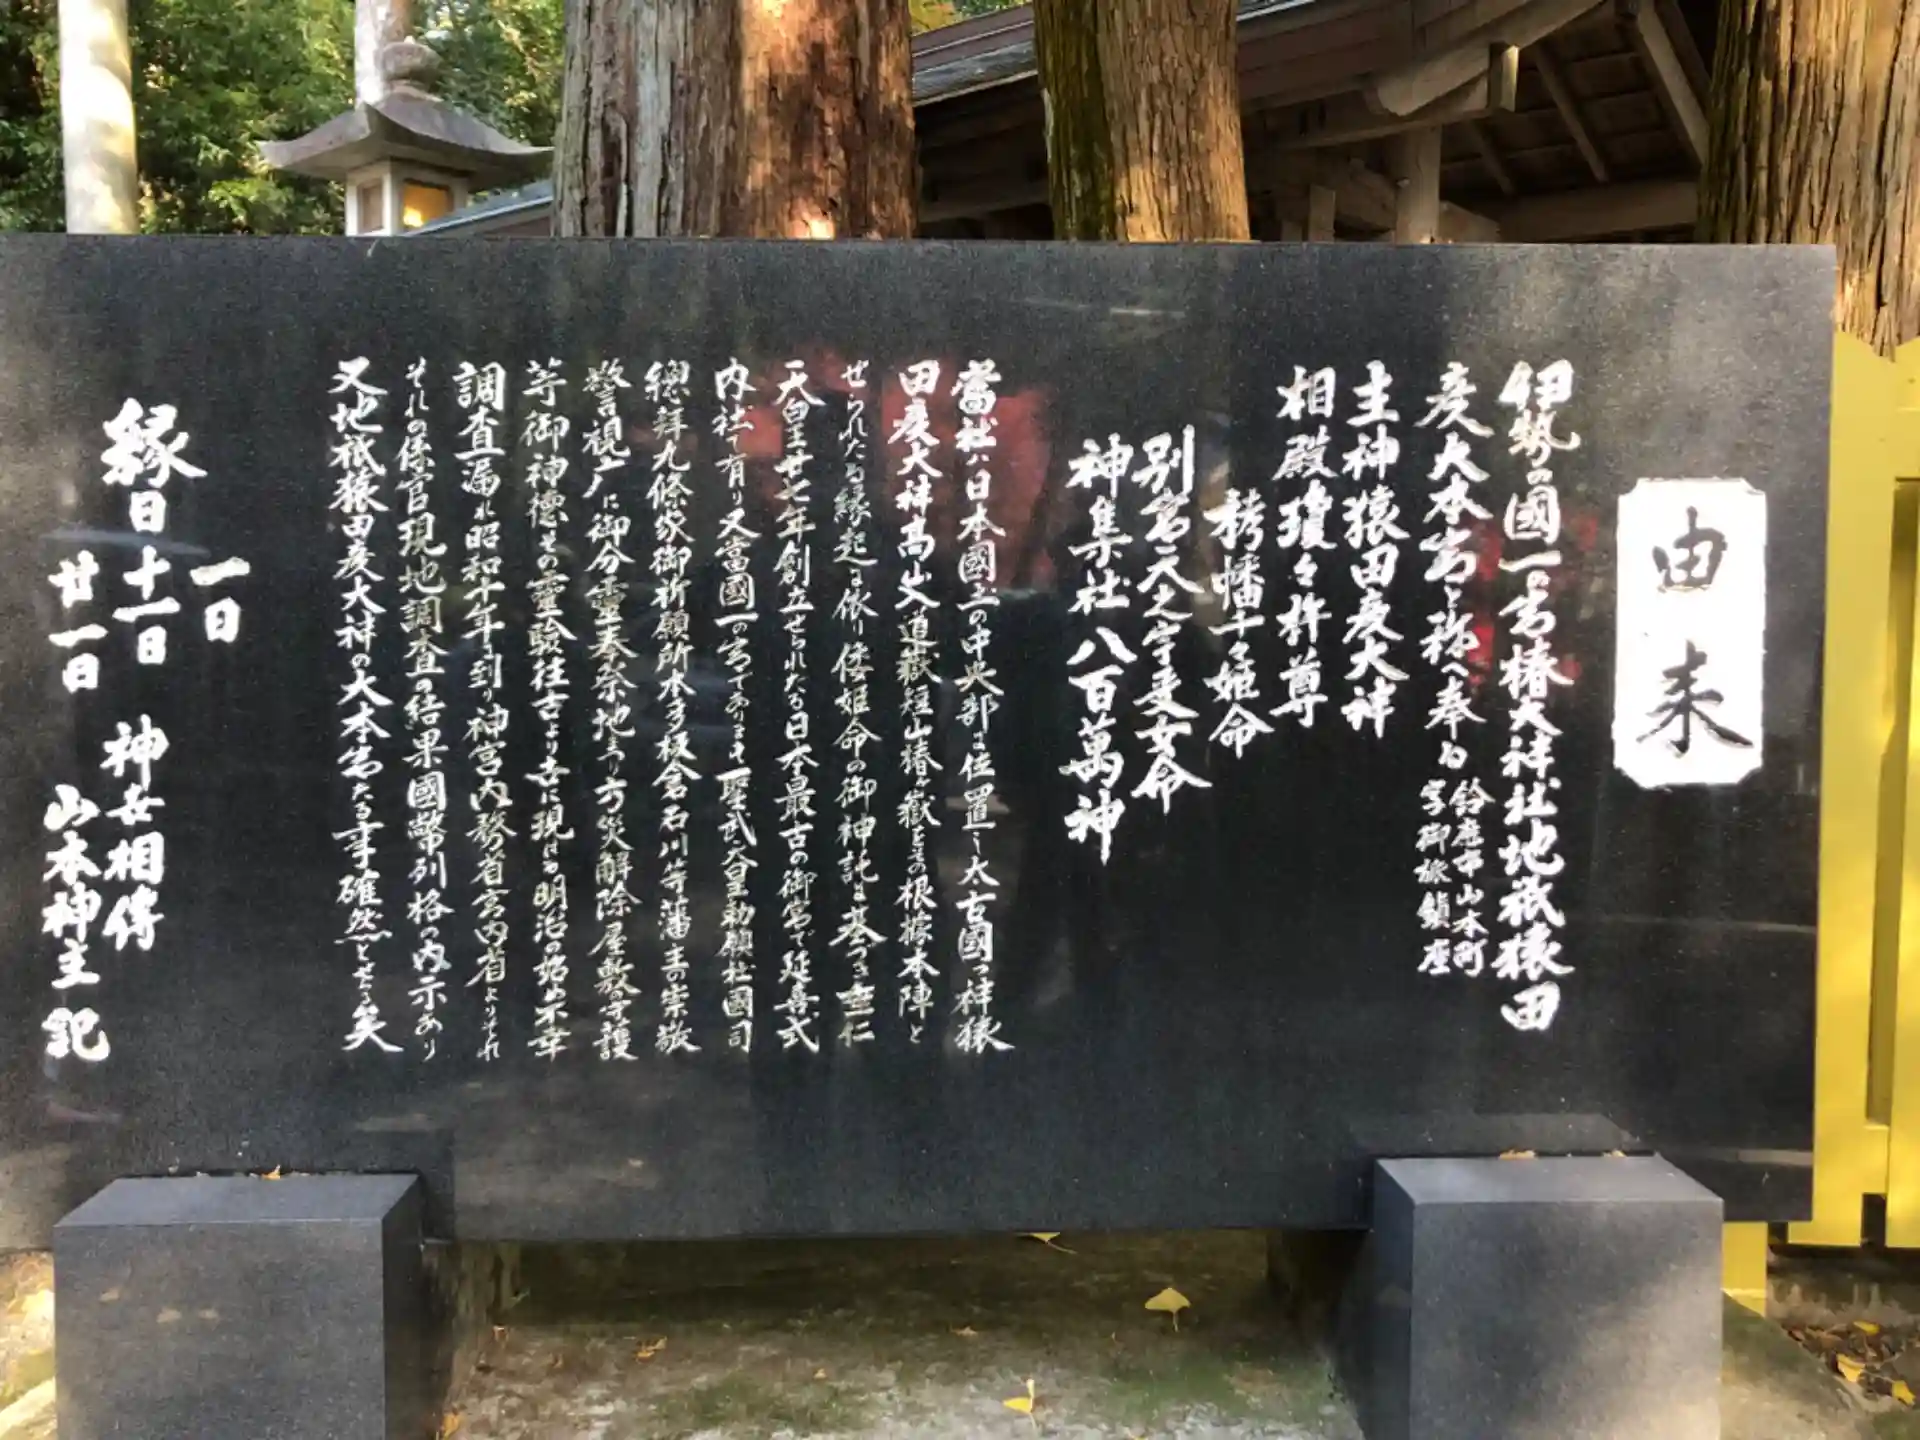 由来
伊勢の國一の宮椿大神社地祇猿田
彦大本宮と称へ奉る
鈴鹿市山本町
字御旅鎮座
主神猿田彦大神
相殿瓊々杵尊
栲幡千々姫命
別宮天之宇受女命
神集社八百萬神
當社ハ日本國土の中央部に位置し太古國つ神猿
田彦大神高山入道嶽短山椿ヶ嶽をその根據本陣と
せられたる縁起に依り倭姫命の御神託に基づき垂仁
天皇廿七年創立せられたる日本最古の御宮で延喜式
内社で有り又當國一の宮であります聖武天皇勅願社國司
總拜九條家御祈願所本多板倉石川等藩主の崇敬
警視庁に御分靈奉祭地まつり方災解除屋敷の守護
等御神徳その靈験往古より世に現はる明治の始め不幸
調査漏れ昭和十年に到り神宮内務省宮内省よりそれ
それの係官現地調査の結果國幣列格の内示あり
又地祇猿田彦大神の大本宮たる事確然とせらる矣
一日
縁日十一日
廿一日
神女相傳
山本神主記